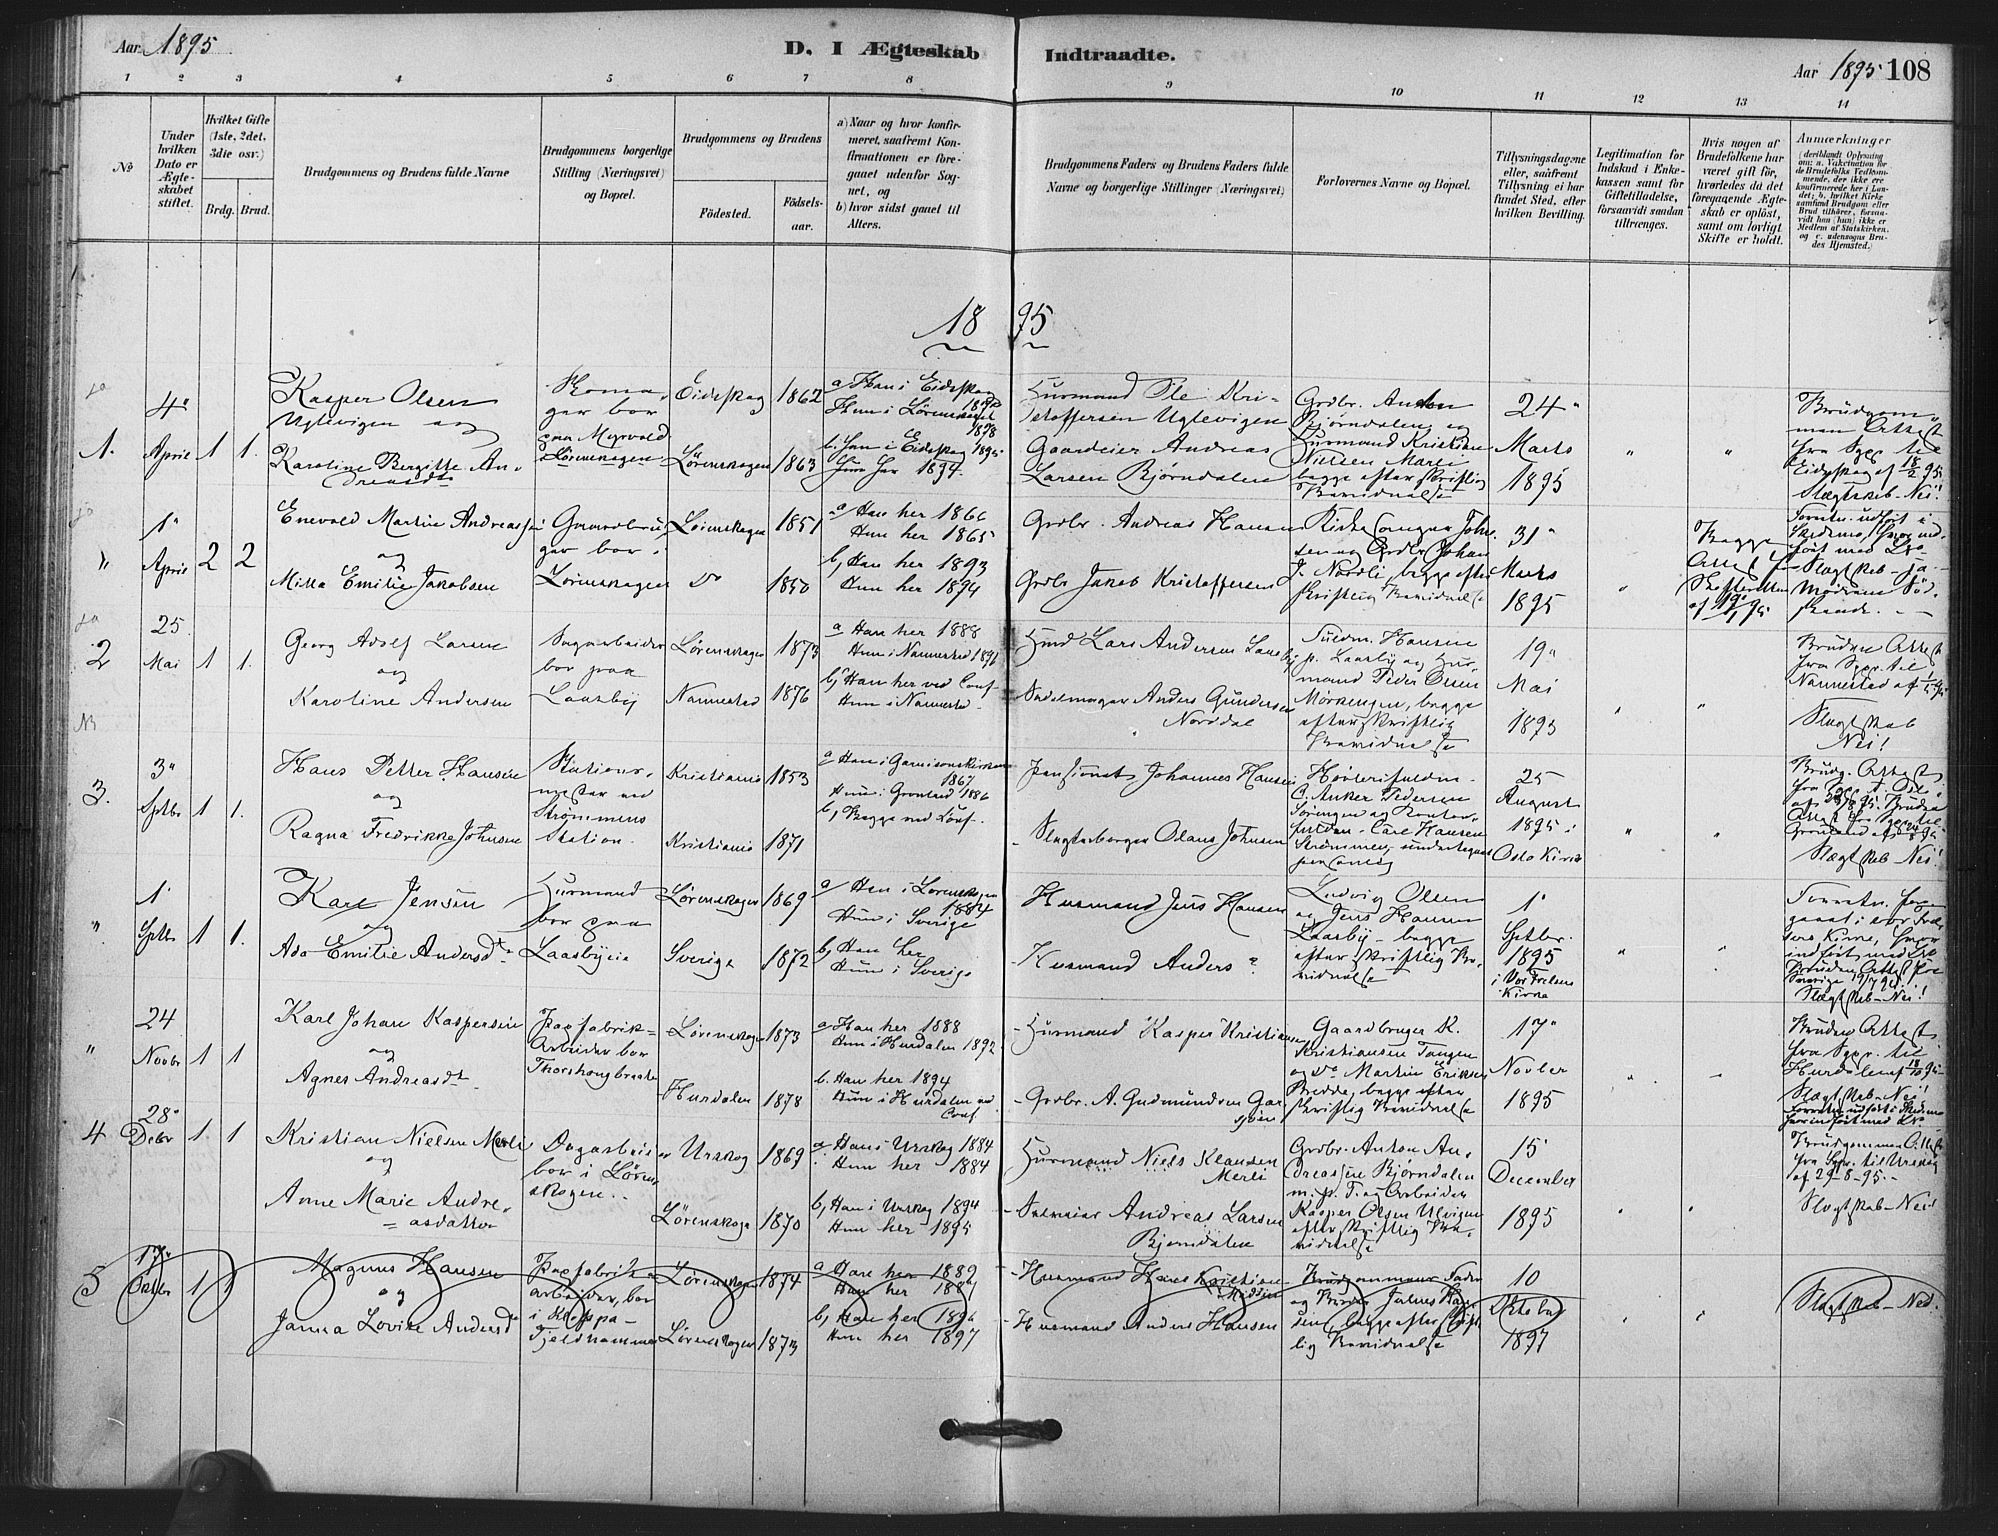 Aar 1895
D. I Ægteskab Indtraadte.
Aar 1895 108
1 2 3 4 5 6 7 8 9 10 11 12 13 14
No
Under hvilken Dato er Ægteskabet stiftet.
Hvilket Gifte (1ste, 2det, 3die osv.)
Brdg. Brud.
Brudgommens og Brudens fulde Navne
Brudgommens borgerlige Stilling (Næringsvei) og Bopæl.
Brudgommens og Brudens
Fødested.
Fødselsaar.
a) Naar og hvor konfirmeret, saafremt Konfirmationen er foregaaet udenfor Sognet, og
b) hvor sidst gaaet til Alters.
Brudgommens Faders og Brudens Faders fulde Navne og borgerlige Stillinger (Næringsvei)
Forlovernes Navne og Bopæl.
Tillysningsdagene eller, saafremt Tillysning ei har fundet Sted, efter hvilken Bevilling.
Legitimation for Indskud i Enkekassen samt for Giftetilladelse, forsaavidt saadan tiltrænges.
Hvis nogen af Brudefolkene har været gift før, hvorledes da det foregaaende Ægteskab er opløst, samt om lovligt Skifte er holdt.
Anmærkninger
(deriblandt Oplysning om: a. Vakcination for de Brudefolks Vedkommende, der ikke ere konfirmerede her i Landet; b. hvilket Kirkesamfund Brudgom eller Brud tilhører, forsaavidt han (hun) ikke er Medlem af Statskirken, og c. udensogns Brudes Hjemsted.)
1895
1. 4 April 1 1
Kasper Olsen
Uglevigen og
Karoline Bergitte Andreasdt
Skomager bor paa Myrvold i Lørenskogen
Eidskog 1862
Lørenskogen 1863
a Han i Eidskog
Hun i Lørenskogen 1878
b, Han i Eidskog 1895
Hun her 1894.
Husmand Ole Kristoffersen Uglevigen
Gaardeier Andreas Larsen Bjørndalen
Grdbr. Anton Bjørndalen og
Husmand Kristian Nielsen Merli
begge efter skriftlig Bevidnelse
24 Marts 1895
Brudgommen Attest
fra Spr. til
Eidskog af 18/2 95.
Slægtskab - Nei!
" 1 April 2 2
Enevald Martin Andreassen
og
Milla Emilie Jakobsen
Gaardbruger bor i Lørenskogen
Lørenskogen 1851
do 1850
a Han her 1866
Hun her 1865
b, Han her 1893
Hun her 1894
Grdbr. Andreas Hansen
Grdbr Jakob Kristoffersen
Kirkesanger Johnsen og Grdbr Johan J. Nordli, begge efter skriftlig Bevidnelse
31 Marts 1895
Begge
Slægtskab - ja
2 25 Mai 1 1.
Georg Adolf Larsen
og
Karoline Andersen
Sagarbeider bor paa Laasby
Lørenskogen 1873
Nannestad 1876
a Han her 1888
Hun i Nannestad 1891
b, Han her ved Conf
Hun i Nannestad
Hmd Lars Andersen Laasby
Sadelmager Anders Gundersen Norddal
Guldm. Hansen p. Laasby og Husmand Peder Olsen
Mørkengen, begge efter skriftlig Bevidnelse
19 Mai 1895
Bruden Attest
fra Spr. til
Nannestad af
Slægtskab
Nei!
3. 3 Sptbr 1 1.
Hans Petter Hansen
og
Ragna Fredrikke Johnsen
Stationsmester ved Strømmens Station.
Kristiania 1853
Kristiania 1871
a Han i Garnisonskirken 1867
Hun i Grønland 1886
b, Begge ved Conf.
Pensionist Johannes Hansen
Slagterborger Olaus Johnsen
C. Anker Pedersen
Carl Hansen Strømmen
25 August 1895 i Oslo Kirke
Brudg. Attest
fra Spr. t. Oslo
Slægtskab Nei!
" 1 Sptbr 1 1.
Karl Jensen
og
Ada Emilie Andersdt
Husmand bor paa Laasbyeie
Lørenskogen 1869
Sverige 1872
a Han i Lørenskogen 1884
Hun i Sverige
b, Han her
Hun i Sverige
Husmand Jens Hansen
Husmand Anders ?
Ludvig Olsen
og Jens Hansen
Laasby - begge
efter skriftlig Bevidnelse
1 Sptbr. 1895
i Vor Frelsers Kirke
Slægtskab - Nei!
" 24 Novbr 1 1
Karl Johan Kaspersen
og
Agnes Andreasdt
Papfabrik-Arbeider bor Thorshaugbraate
Lørenskogen 1873
Hurdalen 1878
a Han her 1888
Hun i Hurdalen 1892
b. Han her 1894
Hun i Hurdalen ved Conf
Husmand Kasper Kristiansen
Grdbr. A. Gudmundsen Garsjøen
Gaardbruger K. Kristiansen Tangen
og do Martin Eriksen
Bredde, begge efter skriftlig Bevidnelse
17 Novber 1895
Bruden Attest
fra Spr. til
Hurdalen af 18/10 95
Slægtskab - Nei!
4 28 Debr 1 1
Kristian Nielsen Merli
og
Anne Marie Andreasdatter
Dagarbeider bor i Lørenskogen.
Urskog 1869
Lørenskogen 1870
a Han i Urskog 1884
Hun her 1884
b, Han i Urskog 1894
Hun her 1895
Husmand Niels Klausen Merli
Selveier Andreas Larsen Bjørndalen
Grdbr. Anton Andreassen Bjørndalen
og Arbeider
Kasper Olsen Ulvigen
efter skriftlig Bevidnelse
15 December 1895
Brudgommen Attest
fra Spr. til Urskog
af 29-8-95.
Slægtskab - Nei!
5 17 Oktbr 1 1
Magnus Hansen
og
Janna Lovise Andersdt
Papfabrikarbeider, bor i Kloppa - Fjeldhammer
Lørenskogen 1874
Lørenskogen 1873
a Han her 1889
Hun her
b, Han her 1896
Hun her 1897
Husmand Hans Kristian
Husmand Anders Hansen
Brudgommens Fader
og
begge efter skriftlig Bevidnelse
10 Oktober 1897
Slægtskab - Nei.